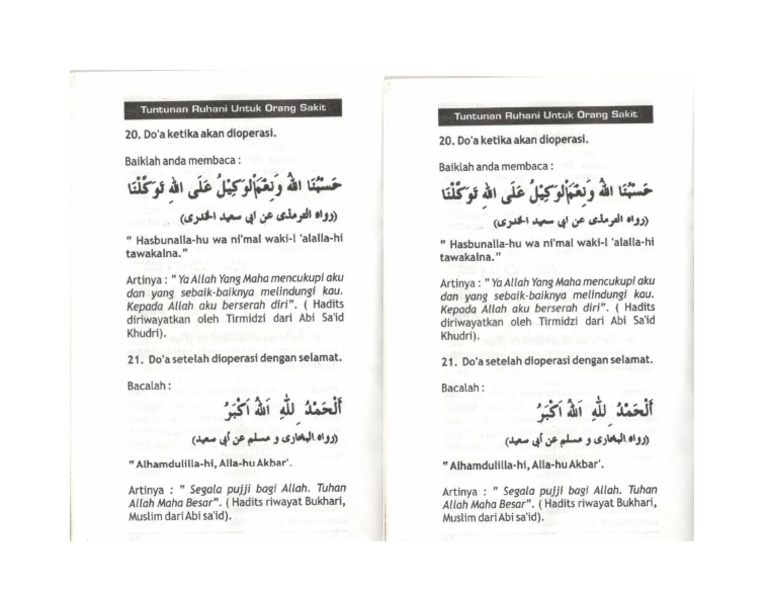 Tuntunan Ruhani Untuk Orang Sakit
20. Do'a ketika akan dioperasi.
Baiklah anda membaca :
حَسْبُنَا اللهُ وَنِعْمَ الْوَكِيْلُ عَلَى اللهِ تَوَكَّلْنَا
(رواه الترمذى عن ابي سعيد الخدرى)
" Hasbunalla-hu wa ni'mal waki-l 'alalla-hi
tawakalna."
Artinya : " Ya Allah Yang Maha mencukupi aku
dan yang sebaik-baiknya melindungi kau.
Kepada Allah aku berserah diri". ( Hadits
diriwayatkan oleh Tirmidzi dari Abi Sa'id
Khudri).
21. Do'a setelah dioperasi dengan selamat.
Bacalah :
اَلْحَمْدُ لِلّٰهِ اَللهُ اَكْبَرُ
(رواه البخارى و مسلم عن أبي سعيد)
" Alhamdulilla-hi, Alla-hu Akbar'.
Artinya : " Segala pujji bagi Allah. Tuhan
Allah Maha Besar". ( Hadits riwayat Bukhari,
Muslim dari Abi sa'id).
Tuntunan Ruhani Untuk Orang Sakit
20. Do'a ketika akan dioperasi.
Baiklah anda membaca :
حَسْبُنَا اللهُ وَنِعْمَ الْوَكِيْلُ عَلَى اللهِ تَوَكَّلْنَا
(رواه الترمذى عن ابي سعيد الخدرى)
" Hasbunalla-hu wa ni'mal waki-l 'alalla-hi
tawakalna."
Artinya : " Ya Allah Yang Maha mencukupi aku
dan yang sebaik-baiknya melindungi kau.
Kepada Allah aku berserah diri". ( Hadits
diriwayatkan oleh Tirmidzi dari Abi Sa'id
Khudri).
21. Do'a setelah dioperasi dengan selamat.
Bacalah :
اَلْحَمْدُ لِلّٰهِ اَللهُ اَكْبَرُ
(رواه البخارى و مسلم عن أبي سعيد)
" Alhamdulilla-hi, Alla-hu Akbar'.
Artinya : " Segala pujji bagi Allah. Tuhan
Allah Maha Besar". ( Hadits riwayat Bukhari,
Muslim dari Abi sa'id).